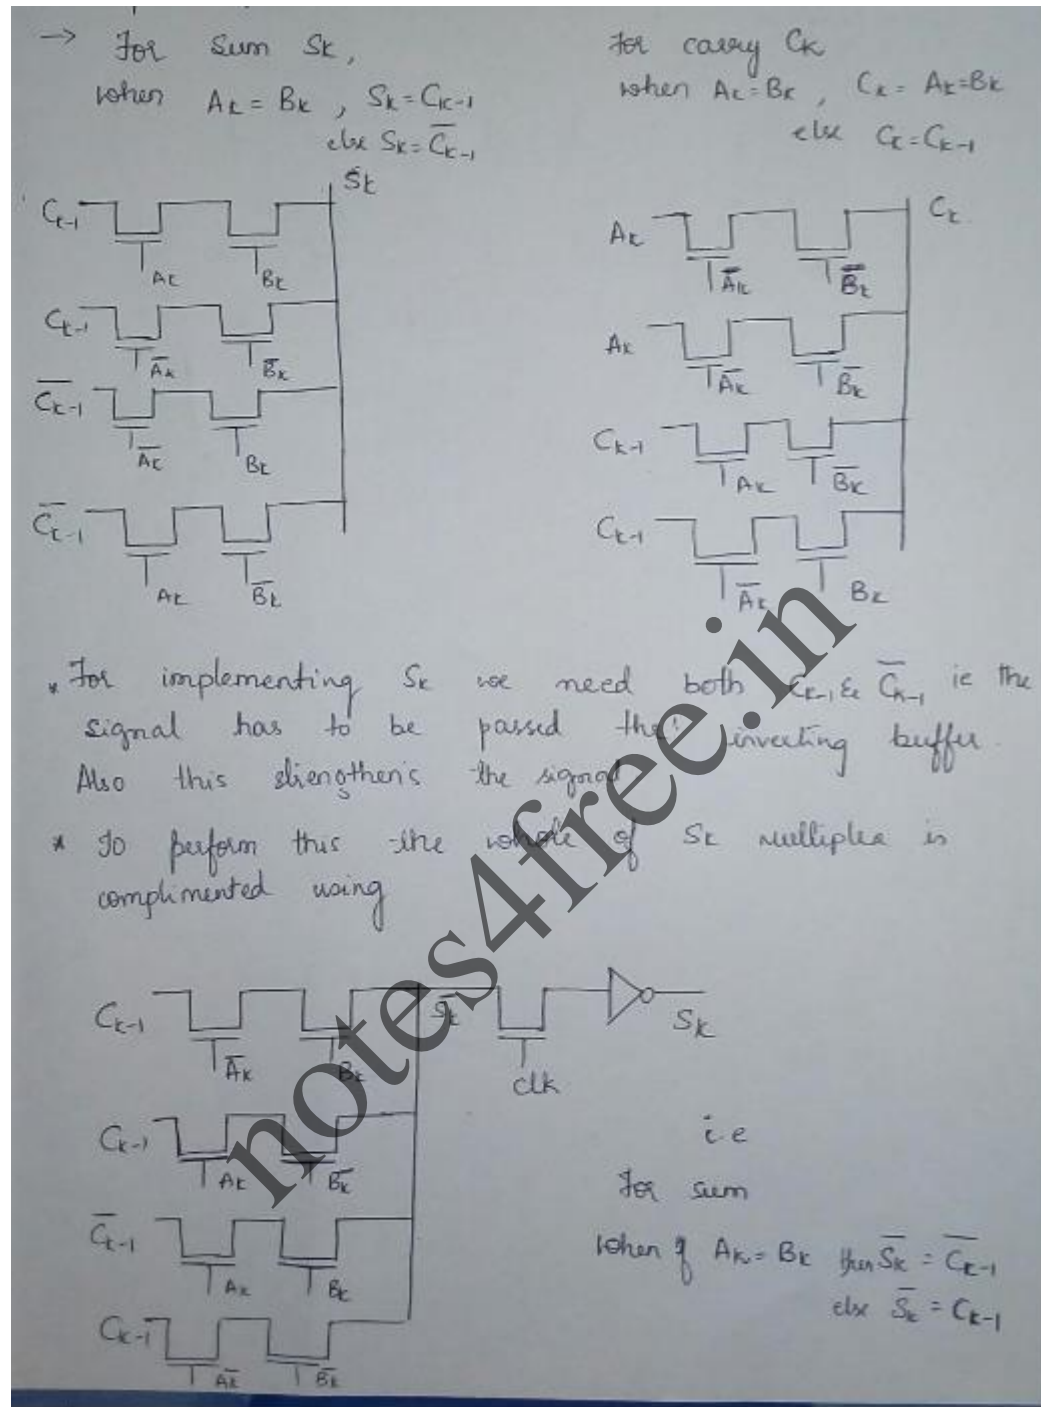 → For Sum Sk,
when Ak = Bk , Sk = Ck-1
else Sk = C̅k-1
For carry Ck
when Ak = Bk , Ck = Ak = Bk
else Ck = Ck-1
Sk
Ck-1
Ak Bk
Ck-1
A̅k B̅k
C̅k-1
A̅k Bk
C̅k-1
Ak B̅k
Ck
Ak
A̅k B̅k
Ak
A̅k B̅k
Ck-1
Ak B̅k
Ck-1
A̅k Bk
* For implementing Sk we need both Ck-1 & C̅k-1 ie the
signal has to be passed thr' inverting buffer.
Also this strengthen's the signal
* To perform this the whole of Sk multiplex is
complimented using
Ck-1 S̅k Sk
A̅k Bk clk
Ck-1
Ak B̅k
C̅k-1
Ak Bk
Ck-1
A̅k B̅k
i.e
For sum
when if Ak = Bk then S̅k = C̅k-1
else S̅k = Ck-1
notes4free.in